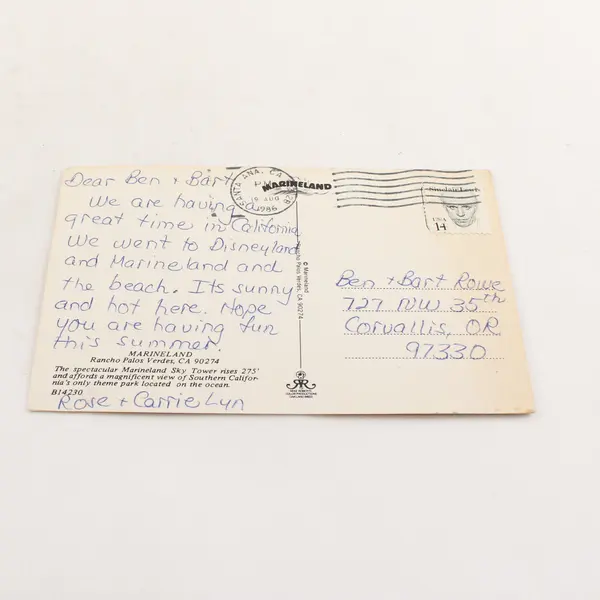 Dear Ben + Bart
We are having a
great time in California
We went to Disneyland
and Marineland and
the beach. Its sunny
and hot here. Hope
you are having fun
this summer.
MARINELAND
Rancho Palos Verdes, CA 90274
The spectacular Marineland Sky Tower rises 275'
and affords a magnificent view of Southern Califor-
nia's only theme park located on the ocean.
B14230
Rose + Carrie Lyn
SANTA ANA, CA
PM
AUG
1986
MARINELAND
© Marineland
Rancho Palos Verdes, CA 90274
Sinclair Lewis
USA
14
Ben + Bart Rowe
727 NW 35th
Corvallis, OR
97330